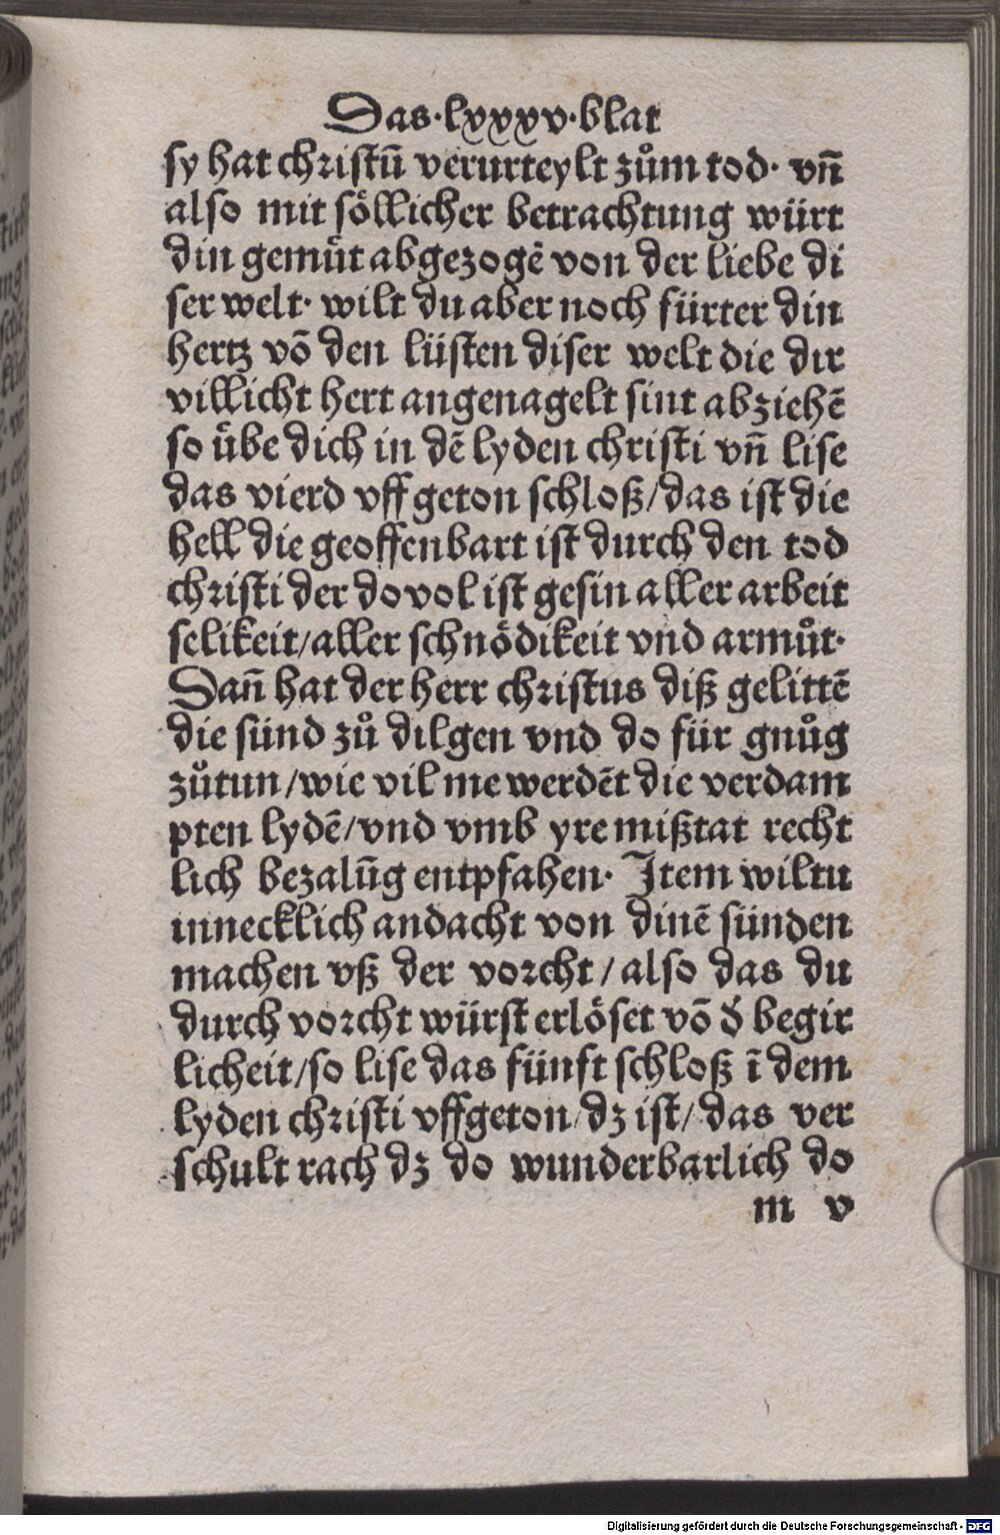 Das·lxxxv·blat
sy hat christū verurteylt zům tod· vn̄
also mit söllicher betrachtung würt
din gemüt abgezogē von der liebe di
ser welt· wilt du aber noch fürter din
hertz vō den lüsten diser welt die dir
villicht hert angenagelt sint abziehē
so übe dich in dē lyden christi vn̄ lise
das vierd vff geton schloß/das ist die
hell die geoffenbart ist durch den tod
christi der do vol ist gesin aller arbeit
selikeit/aller schnödikeit vnd armůt·
Dan̄ hat der herr christus diß gelittē
die sünd zů dilgen vnd do für gnůg
zůtun/wie vil me werdēt die verdam
pten lydē/vnd vmb yre mißtat recht
lich bezalūg entpfahen· Item wiltu
innecklich andacht von dinē sünden
machen vß der vorcht/also das du
durch vorcht würst erlöset vō d̄ begir
licheit/so lise das fünft schloß ī dem
lyden christi vffgeton/dz ist/das ver
schult rach dz do wunderbarlich do
m v
Digitalisierung gefördert durch die Deutsche Forschungsgemeinschaft - DFG